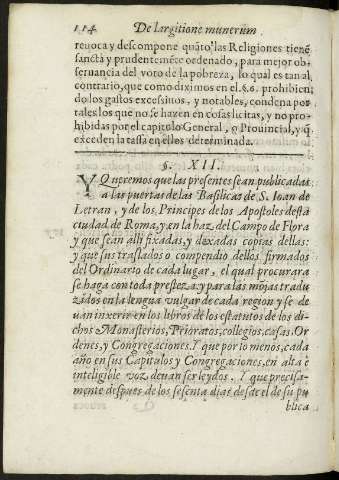 114 De largitione munerum
reuoca y descompone quãto las Religiones tienẽ
sancta y prudentemẽte ordenado, para mejor ob-
seruancia del voto de la pobreza, lo qual es tan al
contrario, que como diximos en el §.6. prohibien
do los gastos excessiuos, y notables, condena por
tales los que no se hazen en cosas licitas, y no pro-
hibidas por el capitulo General, o Prouincial, y q̃
exceden la tassa en ellos determinada.
§. XII.
Y Queremos que las presentes sean publicadas
a las puertas de las Basilicas de S. Ioan de
Letran, y de los Principes de los Apostoles desta
ciudad de Roma, y en la haz del Campo de Flora
y que sean alli fixadas, y dexadas copias dellas:
y que sus traslados o compendio dellos firmados
del Ordinario de cada lugar, el qual procurara
se haga con toda presteza: y para las mõjas tradu
zidos en la lengua vulgar de cada region y se de
uan inxerir en los libros de los estatutos de los di-
chos Monasterios, Prioratos, collegios, casas, Or
denes, y Congregaciones. Y que por lo menos, cada
año en sus Capitulos y Congregaciones, en alta e
inteligible voz deuan ser leydos. Y que precisa-
mente despues de los sesenta dias desde el de su pu
blica